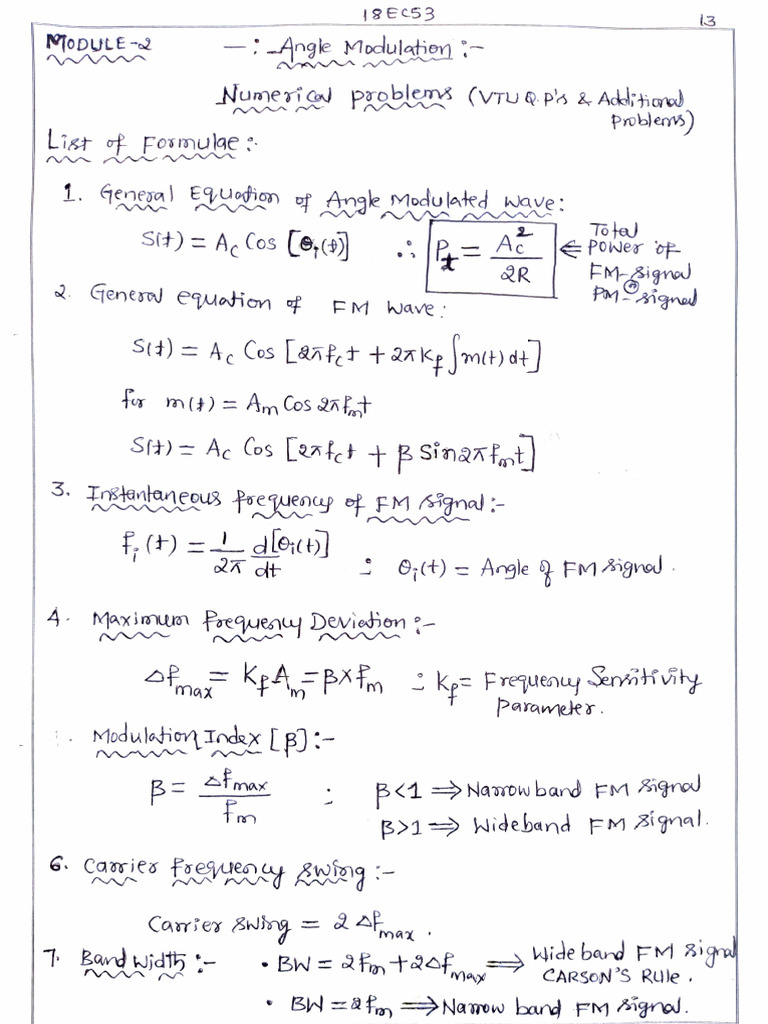 18EC53
13
MODULE-2 —:- Angle Modulation:-
Numerical problems (VTU Q.P's & Additional Problems)
List of Formulae:-
1. General Equation of Angle Modulated wave:
S(t) = Ac Cos [θi(t)] ∴ Pt = Ac²/2R ⇐ Total power of FM-signal (or) PM-signal
2. General equation of FM wave:
S(t) = Ac Cos [2πfct + 2πKf ∫m(t) dt]
for m(t) = Am Cos 2πfmt
S(t) = Ac Cos [2πfct + β Sin2πfmt]
3. Instantaneous frequency of FM signal:-
fi(t) = 1/2π d[θi(t)]/dt ; θi(t) = Angle of FM signal.
4. Maximum frequency Deviation:-
Δfmax = Kf Am = β×fm ; Kf = Frequency Sensitivity Parameter.
Modulation Index [β]:-
β = Δfmax/fm ; β<1 ⇒ Narrow band FM signal
β>1 ⇒ Wideband FM signal.
6. Carrier frequency swing:-
Carrier swing = 2 Δfmax.
7. Band width:- • BW = 2fm + 2Δfmax ⇒ Wide band FM signal CARSON'S RULE.
• BW = 2fm ⇒ Narrow band FM signal.